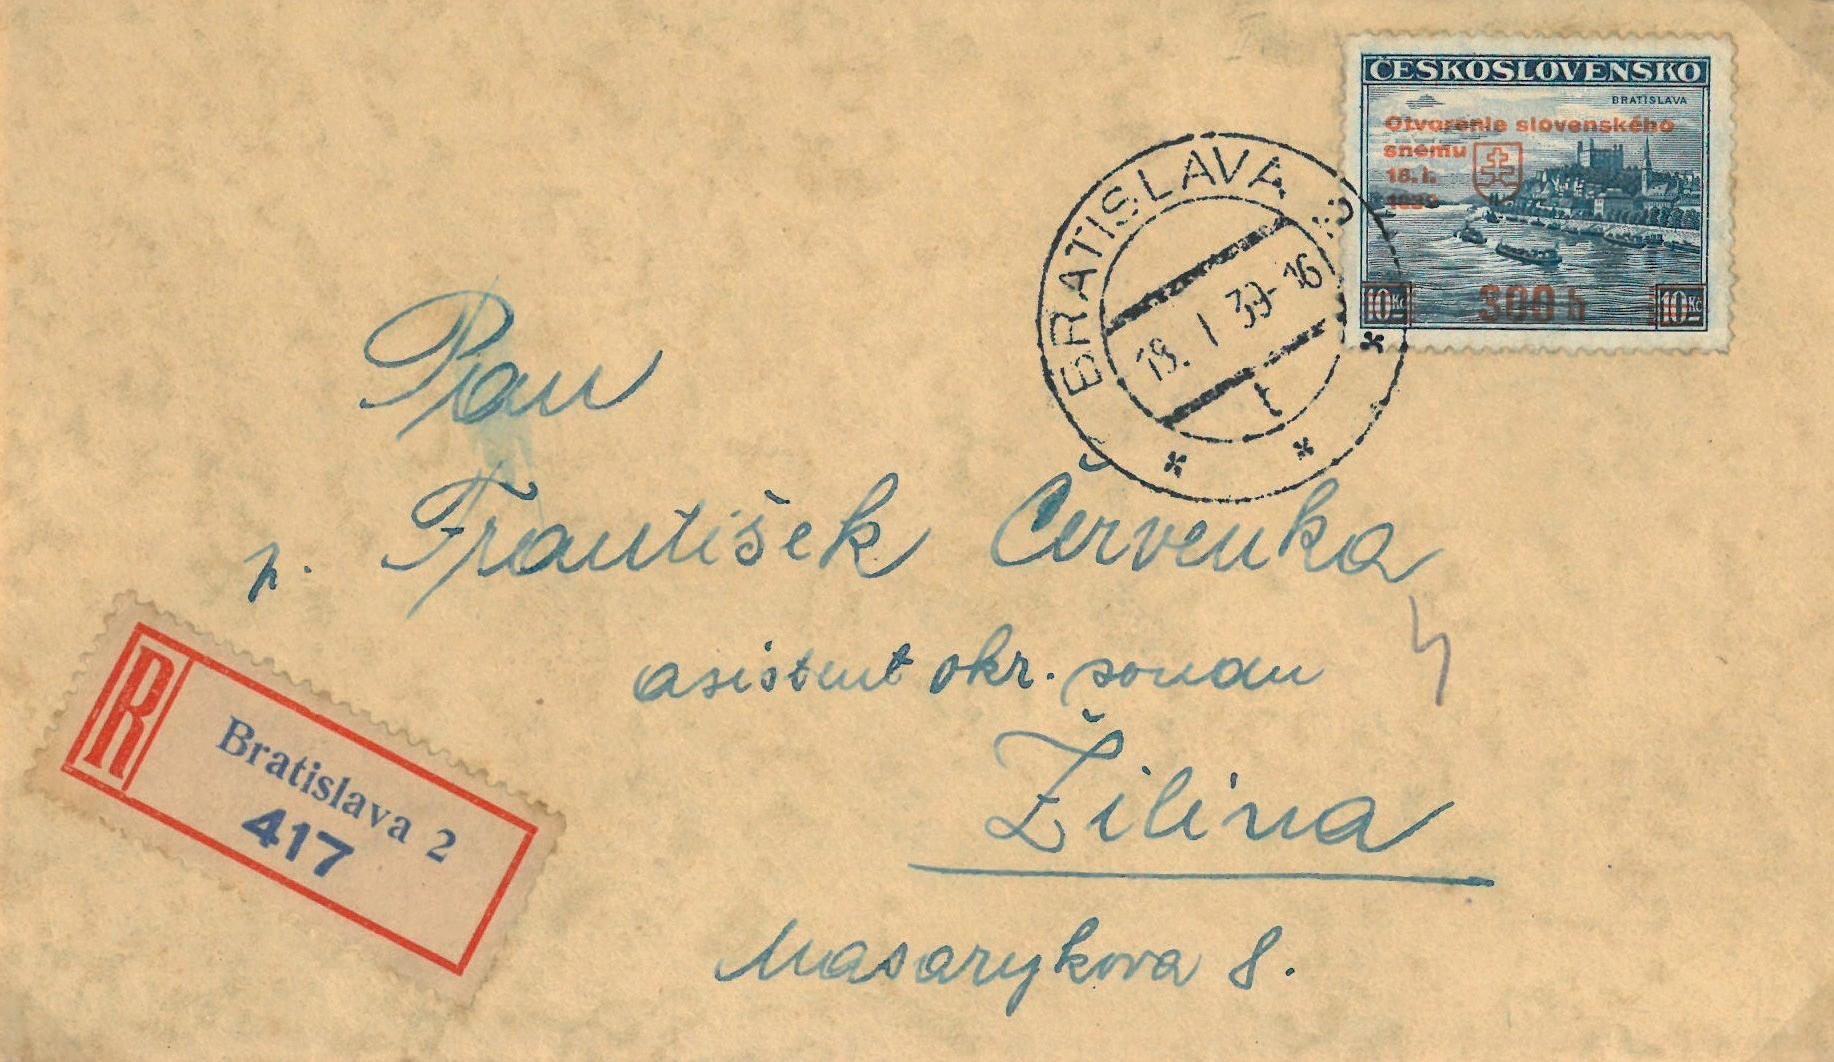 ČESKOSLOVENSKO
BRATISLAVA
Otvorenie slovenského
snemu
18. I.
1939
300 h
10 Kč
10 Kč
BRATISLAVA 2
18. I 39-16
t
Pan
p. František Červenka
asistent okr. soudu
Žilina
Masarykova 8.
R
Bratislava 2
417